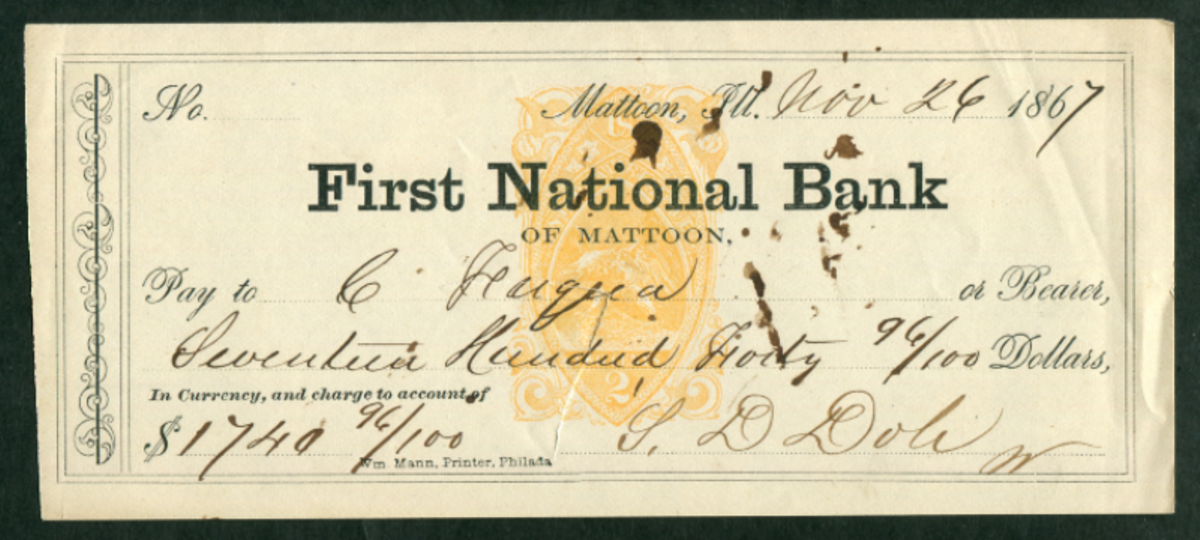 No. Mattoon, Ill. Nov 26 1867
First National Bank
OF MATTOON,
Pay to C Fuqua or Bearer,
Seventeen Hundred Forty 96/100 Dollars,
In Currency, and charge to account of
$1740 96/100 S. D Dole
Wm Mann, Printer, Philada
2